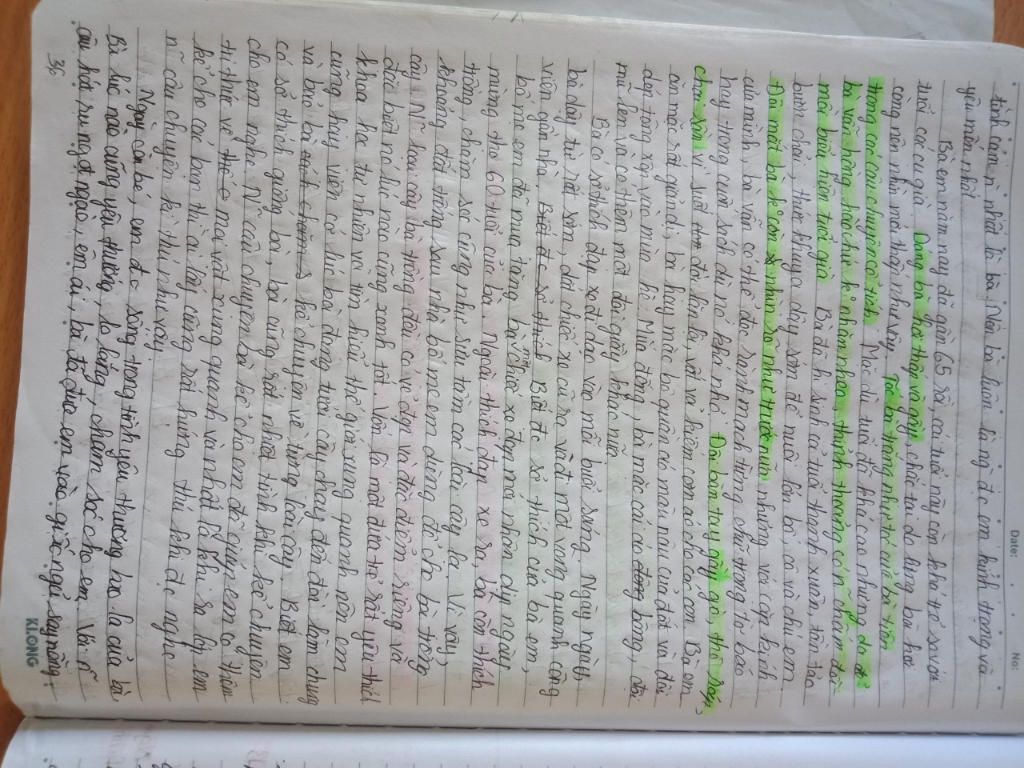 Date:
No:
tình cảm n` nhất là bà. Nên bà luôn là ng` đc em kính trọng và
yêu mến nhất.
Bà em năm nay đã gần 65 rồi, cái tuổi này còn khá trẻ so với
tuổi các cụ già. Dáng bà hơi thấp và gầy, chắc tại do lưng bà hơi
còng nên nhìn mới thấp như vậy. Tóc bà trắng như tr cước bà tiên
trong các câu chuyện cổ tích. Mặc dù tuổi đã khá cao nhưng da dẻ
bà vẫn hồng hào chứ k nhăn nheo, thỉnh thoảng có n~ chấm đồi
mồi biểu hiện tuổi già. Bà đã hi sinh cả tuổi thanh xuân, tần tảo
buôn chải, thức khuya dậy sớm để nuôi lớn bố, cô và chú em.
Đôi mắt bà k còn nhìn rõ như trước nữa nhưng với cặp kính
của mình, bà vẫn có thể đọc rành mạch từng chữ trong tờ báo
hay trong cuốn sách dù nó khá nhỏ. Đôi bàn tay gầy gò, thô ráp,
chai sần vì suốt đời lam lũ vất vả kiếm cơm áo cho các con. Bà em
ăn mặc rất giản dị, bà hay mặc bộ quần áo màu nâu của đất và đi
dép tông xỏ vào mùa hè. Mùa đông, bà mặc cái áo bông, đội
mũ len và có thêm một đôi giày bộ nữa.
Bà có sở thích đạp xe đi dạo vào mỗi buổi sáng. Ngày ngày,
bà dậy từ rất sớm, dắt chiếc xe cũ ra và đi một vòng quanh công
viên gần nhà. Biết đc sở thích của bà em,
bố mẹ em đã mua tặng bà một chiếc xe đạp mới nhân dịp ngày
mừng thọ 60 tuổi của bà. Ngoài thích đạp xe ra, bà còn thích
trồng, chăm sóc cũng như sưu tầm các loài cây lạ. Vì vậy,
khoảng đất trống sau nhà bố mẹ em dùng để cho bà trồng
cây. N~ loài cây bà trồng đều có vẻ đẹp và đặc điểm riêng và
đặc biệt nó lúc nào cũng xanh tốt. Vốn là một đứa trẻ rất yêu thích
khoa học tự nhiên và tìm hiểu thế giới xung quanh nên em
cũng hay viện cớ lúc bà đang tưới cây chạy đến đòi làm chung
và bảo bà kể chuyện về từng loài cây. Biết em
có sở thích giống bà, bà cũng rất nhiệt tình khi kể chuyện
cho em nghe. N~ câu chuyện bà kể cho em đã giúp em có thêm
tri thức về mọi vật xung quanh và nhất là khi ra lớp em
kể cho các bạn thì ai lấy cũng rất hứng thú khi đc nghe
n~ câu chuyện kì thú như vậy.
Ngày còn bé, em đc sống trong tình yêu thương bao la của bà.
Bà lúc nào cũng yêu thương, lo lắng, chăm sóc cho em. Với n~
câu hát ru ngọt ngào, êm ái, bà đã đưa em vào giấc ngủ say nồng.
36
KLONG